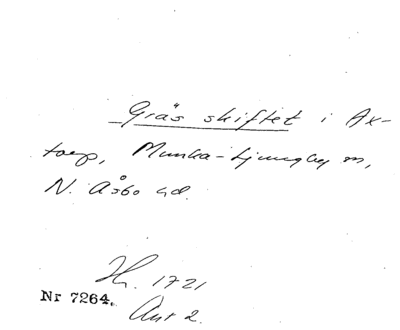 Gräs skiftet i Ax-
torp, Munka-Ljungby sn,
N. Åsbo hd.
Hr. 1721
Nr 7264.
Avr 2.